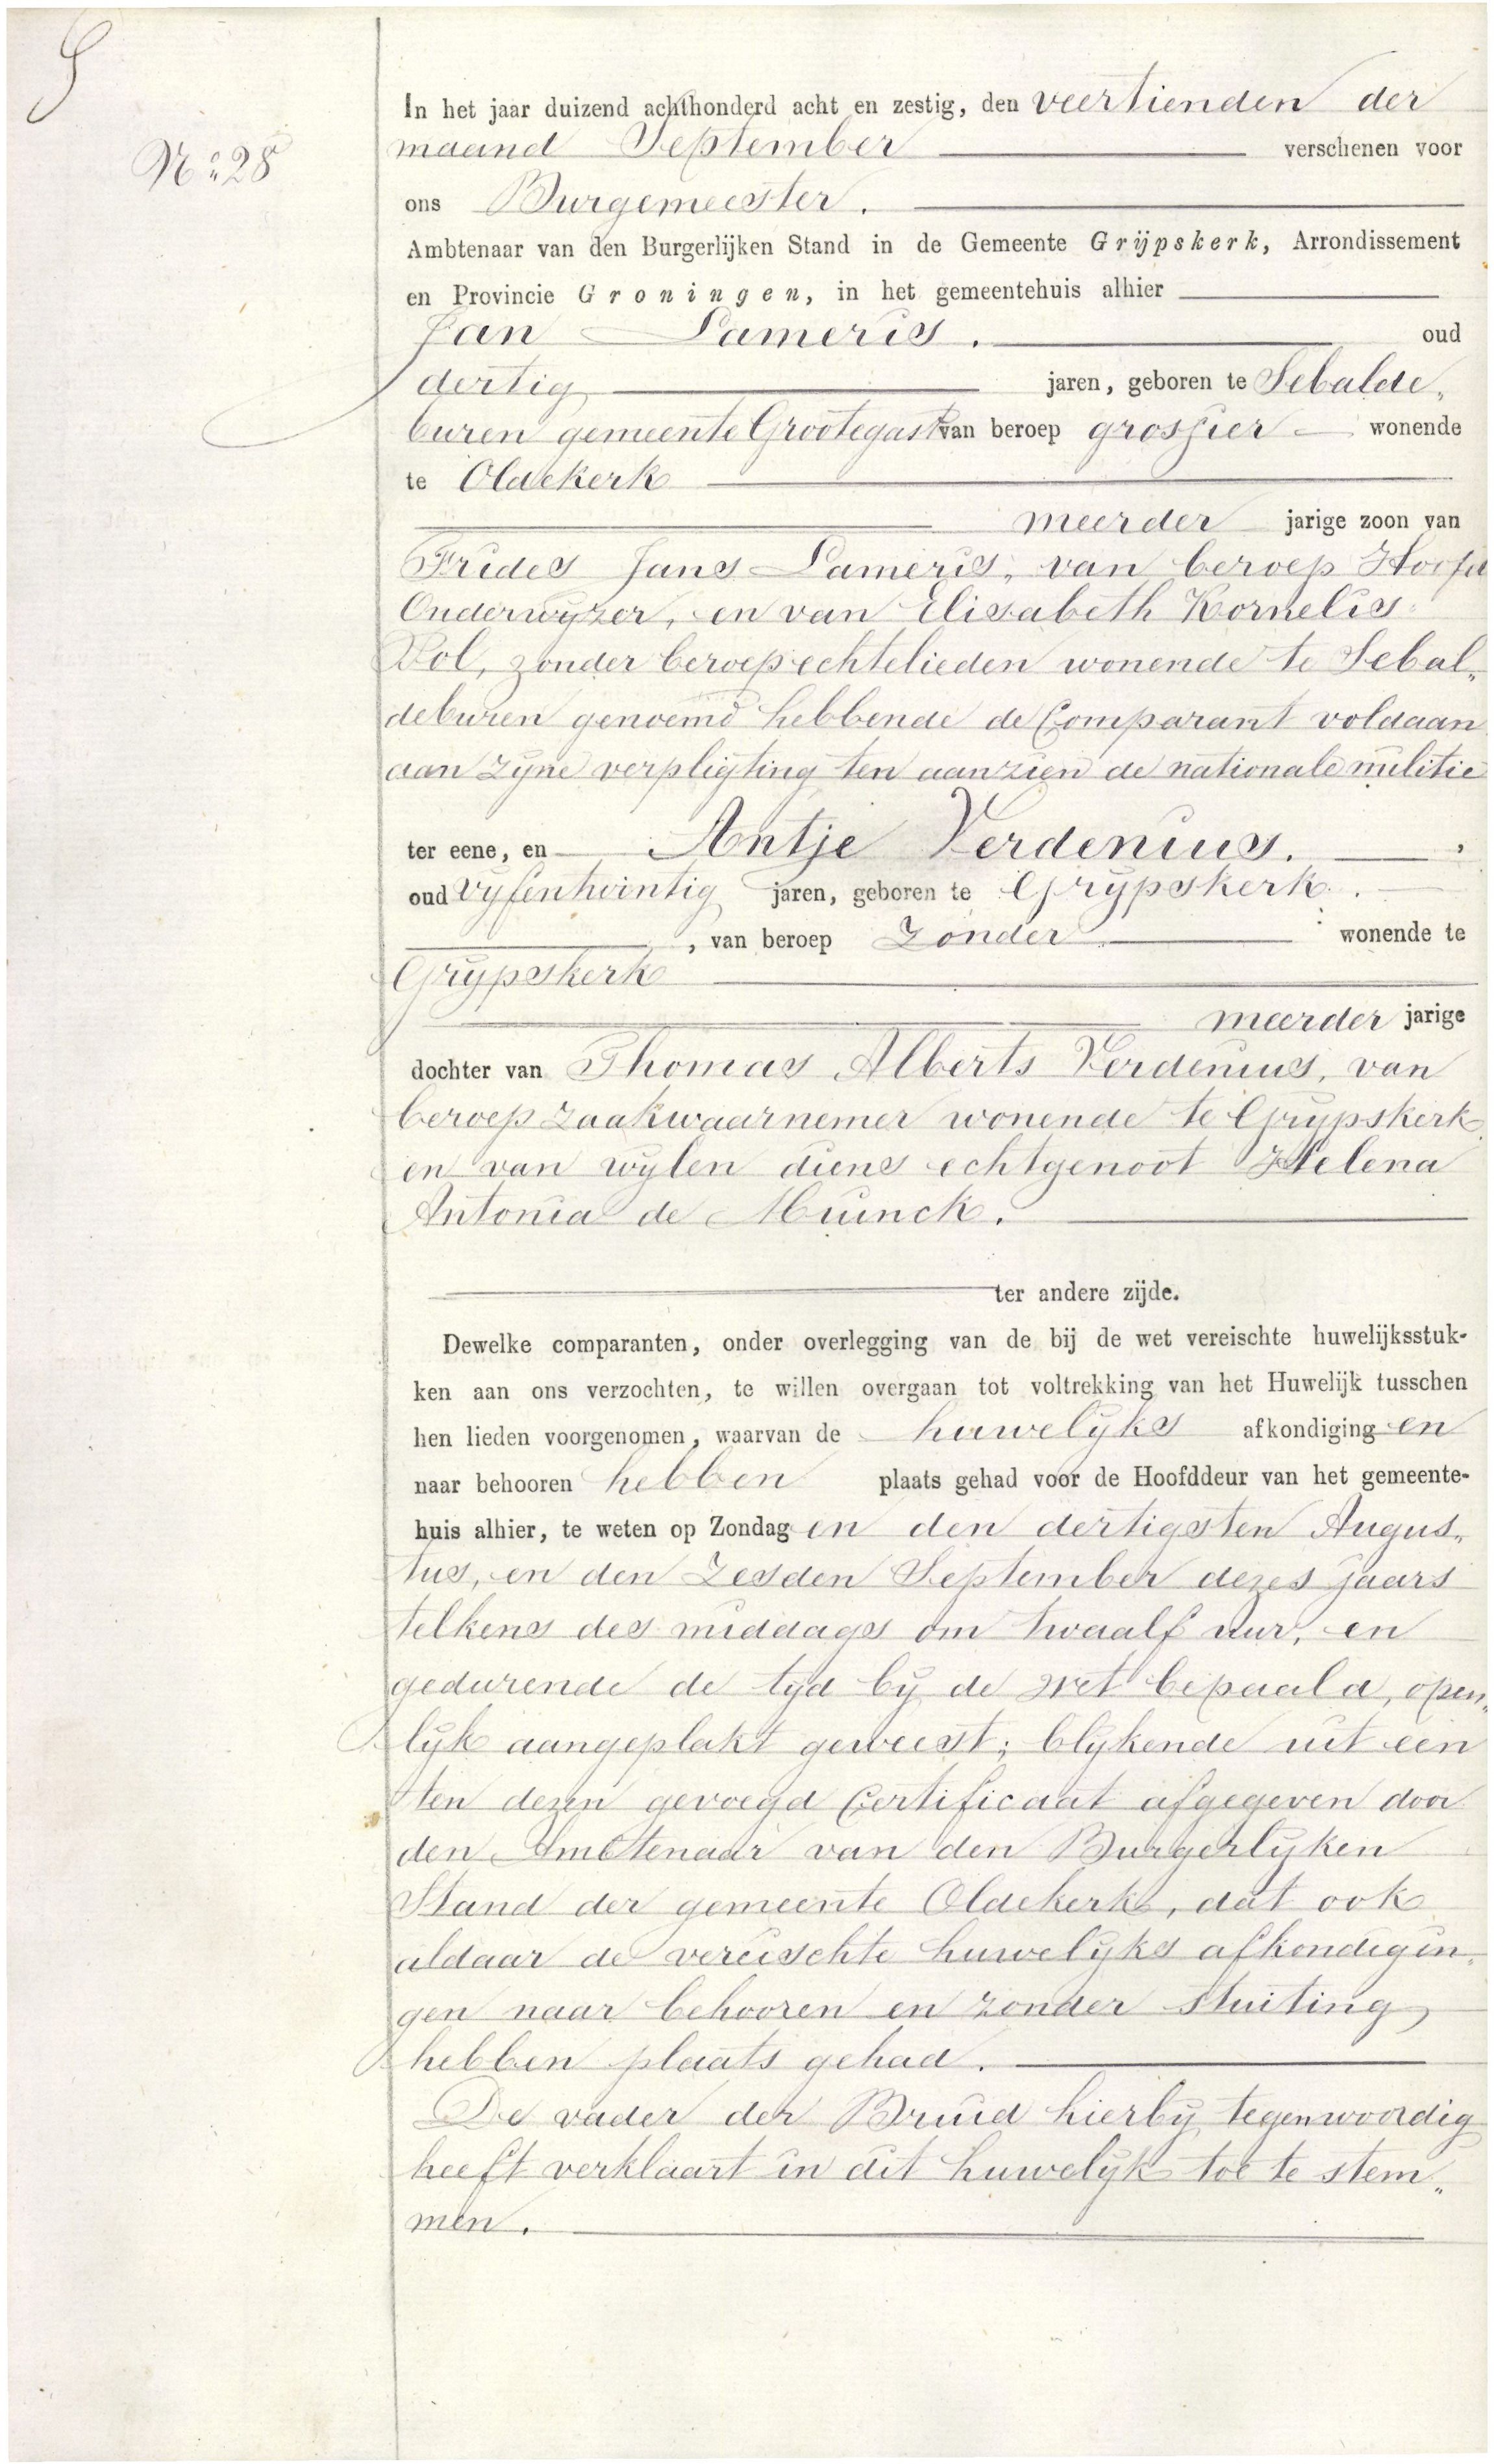 S
No 28
In het jaar duizend achthonderd acht en zestig, den veertienden der
maand September verschenen voor
ons Burgemeester.
Ambtenaar van den Burgerlijken Stand in de Gemeente Grijpskerk, Arrondissement
en Provincie Groningen, in het gemeentehuis alhier
Jan Lameris. oud
dertig jaren, geboren te Sebalde„
buren gemeente Grootegast van beroep grossier wonende
te Oldekerk
meerder jarige zoon van
Frides Jans Lameris, van beroep Hoofd
Onderwyzer, en van Elisabeth Kornelis
Bol, zonder beroep echtelieden wonende te Sebal„
deburen genoemd hebbende de Comparant voldaan
aan zyne verpligting ten aanzien de nationale militie
ter eene, en Antje Verdenius.
oud vyfentwintig jaren, geboren te Grypskerk.
, van beroep Zonder wonende te
Grypskerk
meerder jarige
dochter van Thomas Alberts Verdenius, van
beroep zaakwaarnemer wonende te Grypskerk
en van wylen diens echtgenoot Helena
Antonia de Muinck.
ter andere zijde.
Dewelke comparanten, onder overlegging van de bij de wet vereischte huwelijksstuk-
ken aan ons verzochten, te willen overgaan tot voltrekking van het Huwelijk tusschen
hen lieden voorgenomen, waarvan de huwelyks afkondiging en
naar behooren hebben plaats gehad voor de Hoofddeur van het gemeente-
huis alhier, te weten op Zondag en den dertigsten Augus„
tus, en den Zesden September dezes jaars
telkens des middags om twaalf uur, en
gedurende de tyd by de wet bepaald, open„
lyk aangeplakt geweest; blykende uit een
ten dezen gevoegd Certificaat afgegeven door
den Ambtenaar van den Burgerlyken
Stand der gemeente Oldekerk, dat ook
aldaar de vereischte huwelyks afkondigin„
gen naar behooren en zonder stuiting
hebben plaats gehad.
De vader der Bruid hierby tegenwoordig
heeft verklaart in dit huwelyk toe te stem„
men.